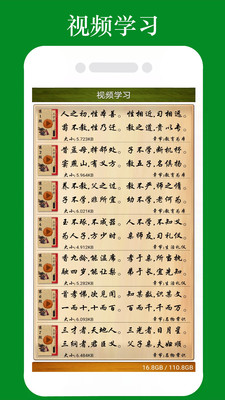 视频学习
视频学习
人之初,性本善。 性相近,习相远。
苟不教,性乃迁。 教之道,贵以专。
大小:5.723KB 章节:教育为本
昔孟母,择邻处。 子不学,断机杼。
窦燕山,有义方。 教五子,名俱扬。
大小:5.964KB 章节:教育为本
养不教,父之过。 教不严,师之惰。
子不学,非所宜。 幼不学,老何为。
大小:6.021KB
玉不琢,不成器。 人不学,不知义。
为人子,方少时。 亲师友,习礼仪。
大小:6.211KB
香九龄,能温席。 孝于亲,所当执。
融四岁,能让梨。 弟于长,宜先知。
大小:5.292KB
首孝悌,次见闻。 知某数,识某文。
一而十,十而百。 百而千,千而万。
大小:6.093KB
三才者,天地人。 三光者,日月星。
三纲者,君臣义。 父子亲,夫妇顺。
大小:6.484KB
16.8GB / 110.8GB